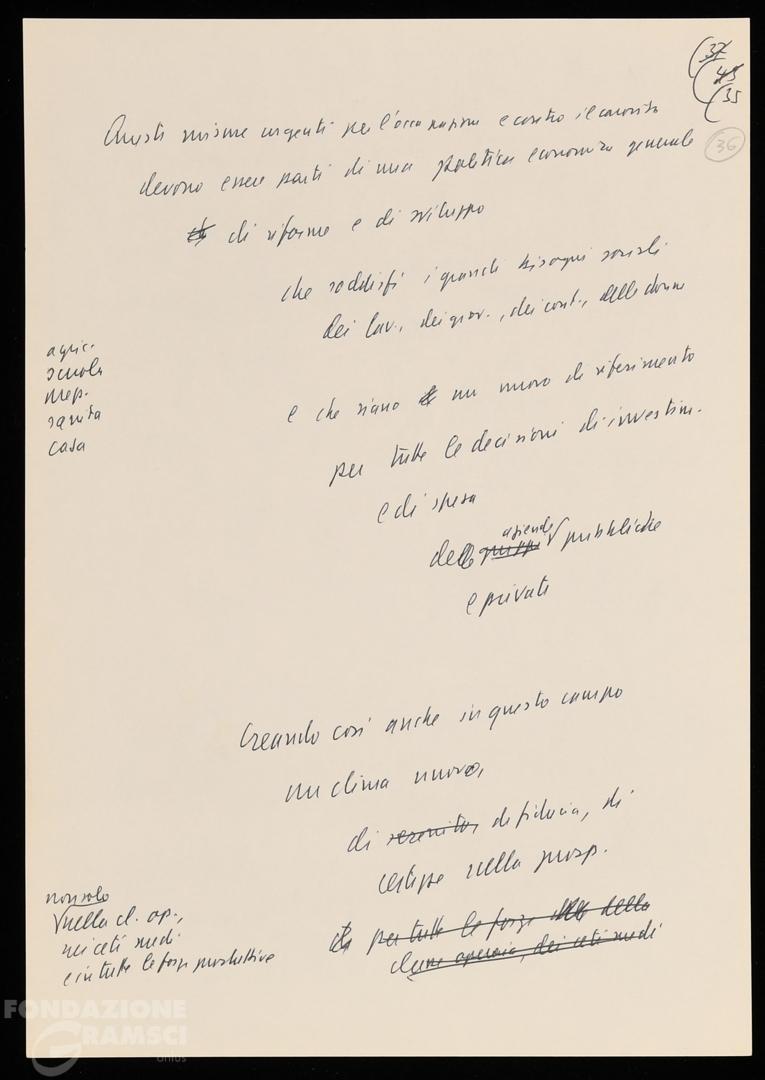 (37
(45
(35
36
Queste misure urgenti per l'occupazione e contro il carovita
devono essere parti di una politica economica generale
di riforme e di sviluppo
che soddisfi i grandi bisogni sociali
dei lav., dei giov., dei cont., delle donne
agric.
scuola
mep.
sanità
casa
e che siano un nuovo di riferimento
per tutte le decisioni di investim.
e di spesa
aziende
delle gruppi √ pubbliche
e private
Creando così anche in questo campo
un clima nuovo,
di serenità, di fiducia, di
certezze nella prosp.
non solo
√nella cl. op.,
nei ceti medi
e in tutte le forze produttive
per tutte le forze della
classe operaia, dei ceti medi
FONDAZIONE
GRAMSCI
onlus